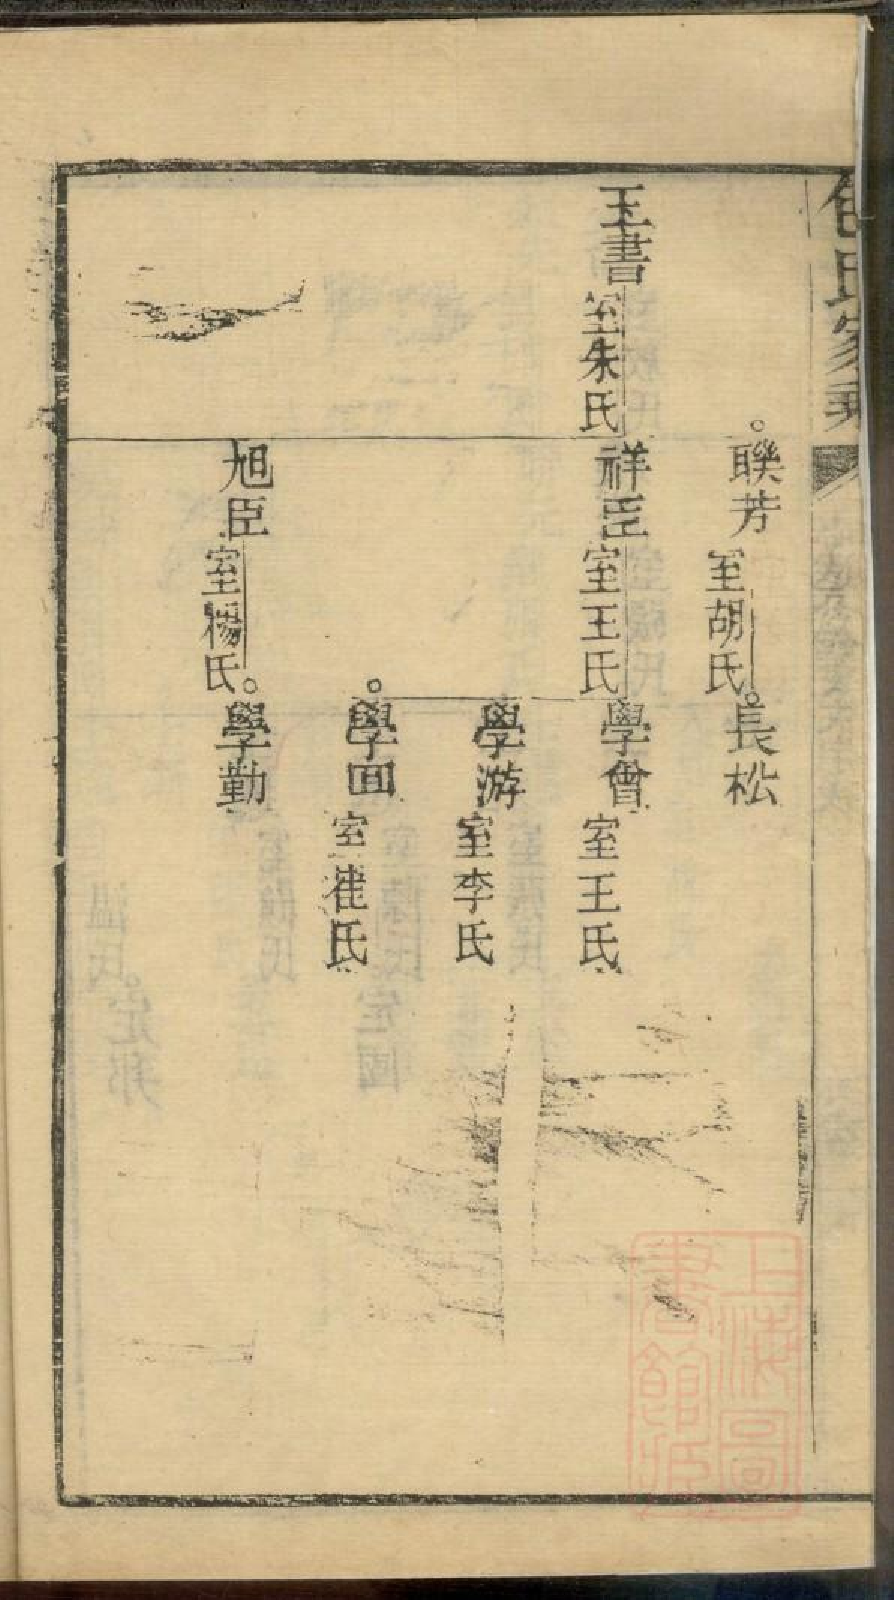 氏家乘
聯芳 室胡氏
長松
王書 室朱氏
祥臣 室王氏
學會 室王氏
學游 室李氏
學回 室崔氏
旭臣 室楊氏
學勤
上海圖
書館藏